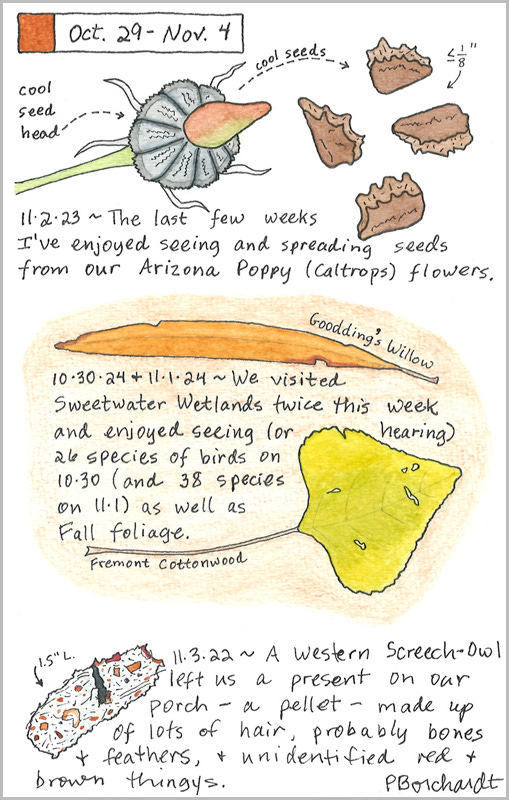 Oct. 29 - Nov. 4
cool seeds
≤ 1/8"
cool
seed
head
11·2·23 ~ The last few weeks
I've enjoyed seeing and spreading seeds
from our Arizona Poppy (Caltrops) flowers.
Goodding's Willow
10·30·24 + 11·1·24 ~ We visited
Sweetwater Wetlands twice this week
and enjoyed seeing (or hearing)
26 species of birds on
10·30 (and 38 species
on 11·1) as well as
Fall foliage.
Fremont Cottonwood
1.5" L.
11·3·22 ~ A Western Screech-Owl
left us a present on our
porch - a pellet - made up
of lots of hair, probably bones
+ feathers, + unidentified red +
brown thingys.
PBorchardt